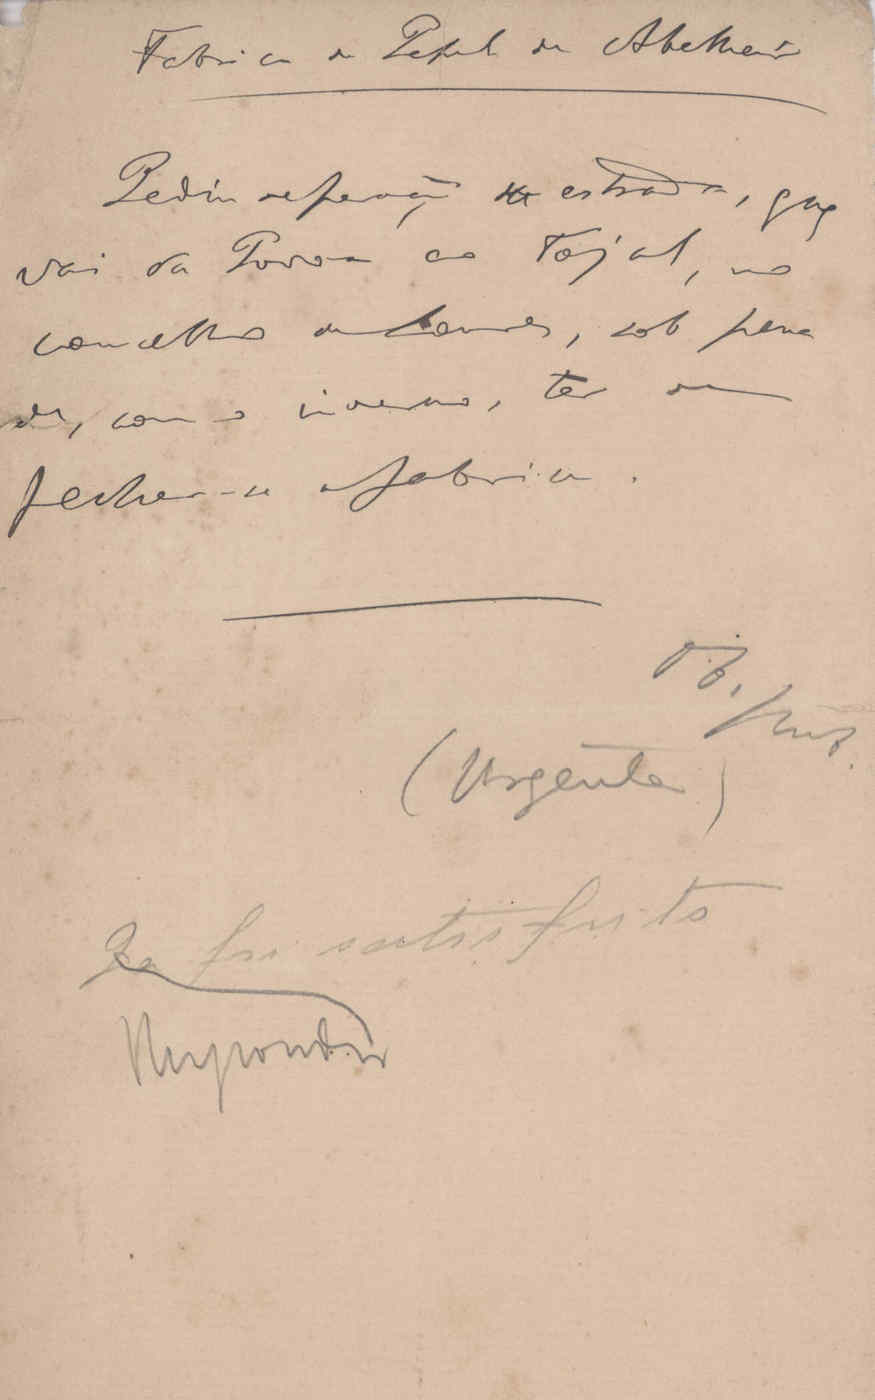 Fabrica de Papel da Abelheira
Pedia reparação estrada, que
vai da Povoa ao Tojal, no
concelho de Loures, sob pena
de, com o inverno, ter de
fechar-se a fabrica.
Ob. pub.
(Urgente)
Ja foi satisfeito
Respondeu